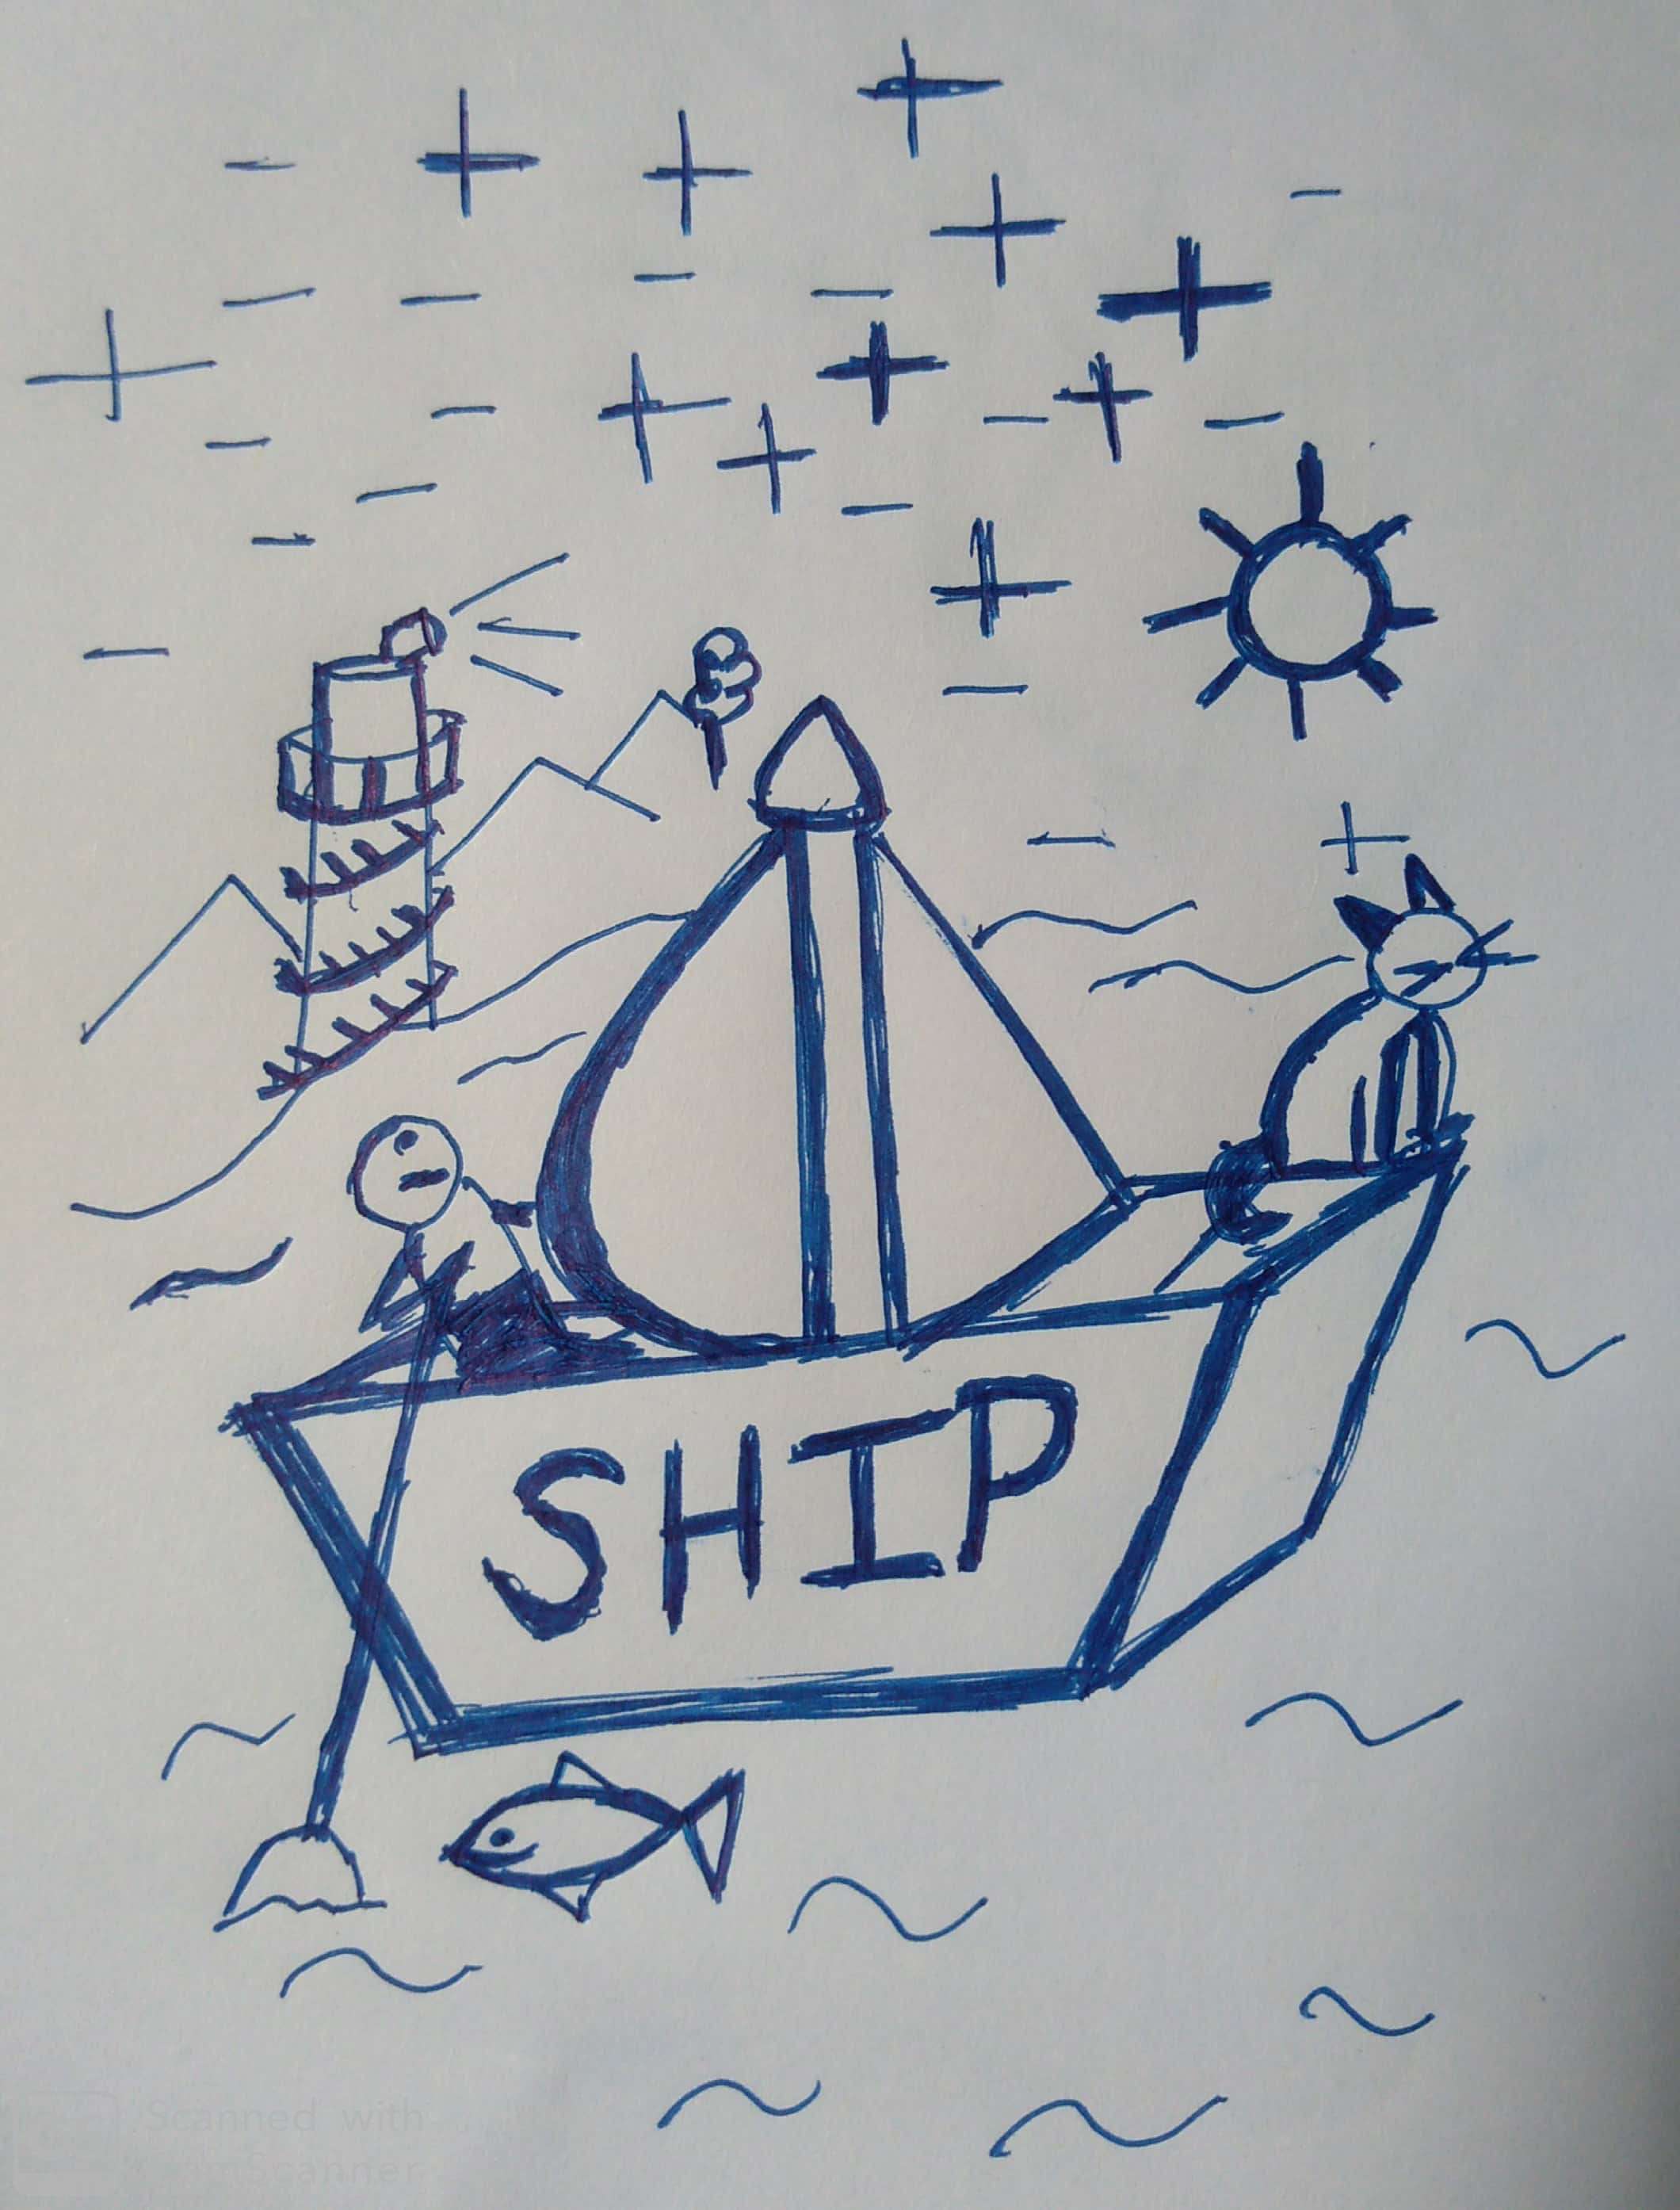 SHIP
Scanned with
CamScanner